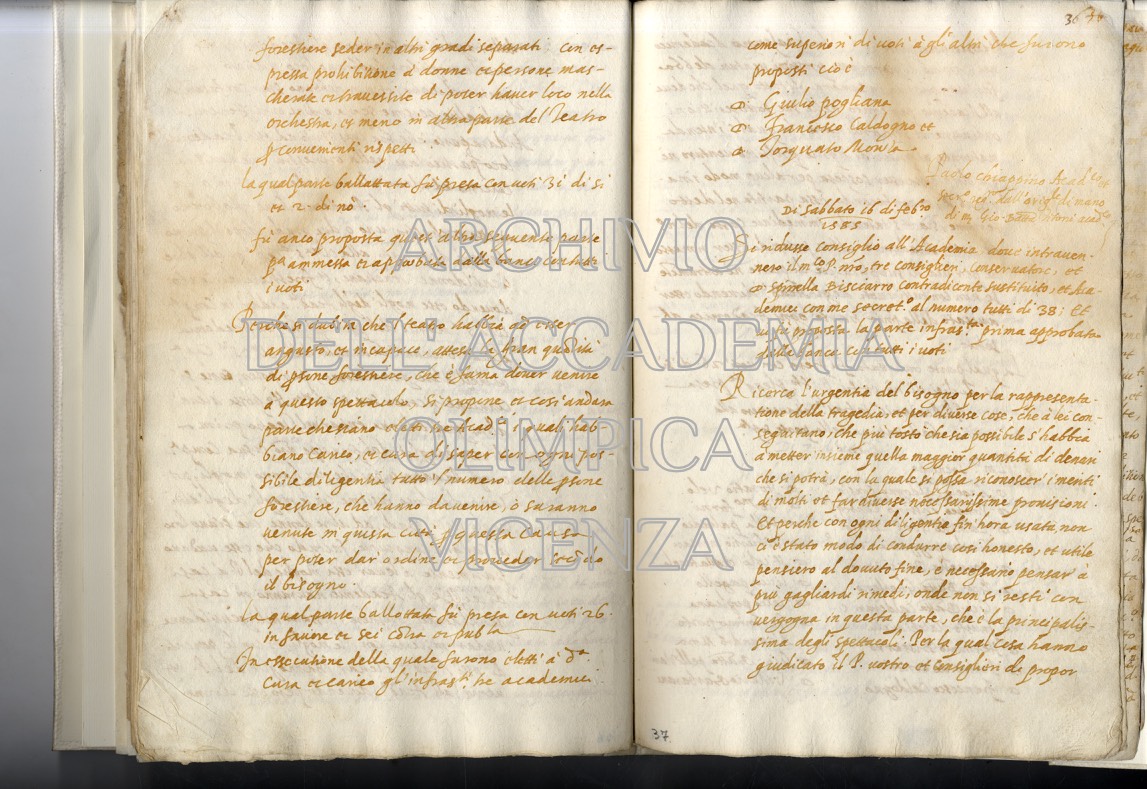 forestiere seder in altri gradi separati con es-
pressa prohibitione à donne et persone mas-
cherate et travestite di poter haver loco nella
orchestra, et meno in altra parte del Teatro
p convenienti rispetti
la qual parte ballottata fù presa con voti 31 di si
et 2 di nò.
fù anco proposta quest'altra sequente parte
pª ammessa et approbata dalla banca con tutti
i voti
Perche si dubita che'l teatro habbia ad esser
angusto, et incapace, attesa la gran qudtità
di psone forestiere, che è fama dover venire
à questo spettacolo, si propone et così andara
parte che siano eletti tre Acadᶜⁱ i quali hab-
biano carico, et cura di saper con ogni pos-
sibile diligentia tutto 'l numero delle psone
forestiere, che hanno da venire, ò saranno
venute in questa città p questa causa
per poter dar ordine et proceder secdo
il bisogno.
la qual parte ballottata fù presa con voti 26
in favore et sei cõtra et publᵗᵃ
In essecutione della quale furono eletti à dᵗᵃ
cura et carico gl'infrasᵗⁱ tre academici
36
come superiori di voti à gl'altri che furono
proposti cioè
Giulio pogliana
Francesco Caldogno et
Torquato Monza
Paolo chiappino Acadᶜᵒ et
secrº dall'origˡᵉ di mano
di m Gio
Di Sabbato 16 di febʳº
1585
Si ridusse consiglio all'Academia dove intraven-
nero il mᶜº P. nro, tre consiglieri, conservatore, et
spinella Bisciarro contradicente sustituito, et Aca-
demici con me secretº al numero tutti di 38: Et
vi fù proposta la parte infrasᵗᵃ prima approbata
dalla banca con tutti i voti
Ricerca l'urgentia del bisogno per la rappresenta-
tione della tragedia, et per diverse cose, che à lei con-
seguitano, che più tosto che sia possibile s'habbia
à metter insieme quella maggior quantità di denari
che si potrà, con la quale si possa riconoscer i meriti
di molti et far diverse necessarissime provisioni.
Et perche con ogni diligentia fin'hora usata, non
ci è stato modo di condurre così honesto, et utile
pensiero al dovuto fine, è necessario pensar à
più gagliardi rimedi, onde non si resti con
vergogna in questa parte, che è la principalis-
sima degli spettacoli: Per la qual cosa hanno
giudicato il P. vostro et Consiglieri di propor
37
ARCHIVIO
DELL'ACCADEMIA
OLIMPICA
VICENZA